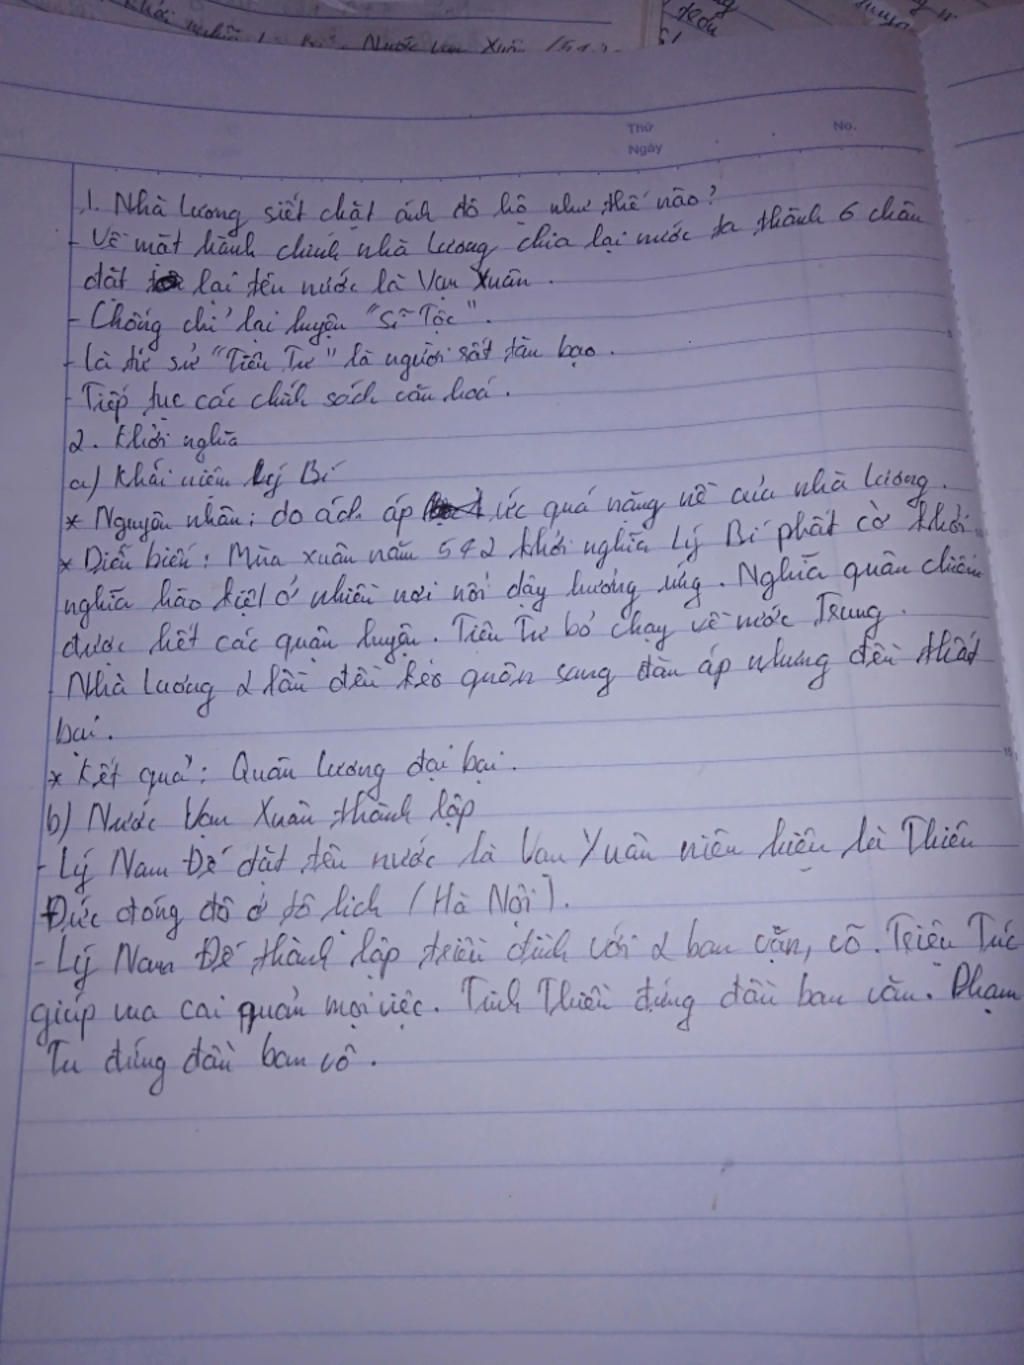 Nước Vạn Xuân (542-
Thứ
Ngày
No.
1. Nhà Lương siết chặt ách đô hộ như thế nào?
- Về mặt hành chính nhà Lương chia lại nước ta thành 6 châu
đặt lại tên nước là Vạn Xuân.
- Chống chỉ lại luyện "Sĩ-Tộc".
- Là tứ sử "Tiêu Tư" là người sất tàn bạo.
- Tiếp tục các chính sách căn hoá.
2. Khởi nghĩa
a) Khái niệm Lý Bí
* Nguyên nhân: do ách áp ức quá nặng nề của nhà Lương.
* Diễn biến: Mùa xuân năm 542 khởi nghĩa Lý Bí phất cờ khởi
nghĩa hào kiệt ở nhiều nơi nổi dậy hưởng ứng. Nghĩa quân chiếm
được hết các quận huyện. Tiêu Tư bỏ chạy về nước Trung.
- Nhà Lương 2 lần đều kéo quân sang đàn áp nhưng đều thất
bại.
* Kết quả: Quân Lương đại bại.
b) Nước Vạn Xuân thành lập
- Lý Nam Đế đặt tên nước là Vạn Xuân niên hiệu là Thiên
Đức đóng đô ở tô lịch (Hà Nội).
- Lý Nam Đế thành lập triều đình với 2 ban văn, võ. Triệu Túc
giúp vua cai quản mọi việc. Tinh Thiều đứng đầu ban văn. Phạm
Tu đứng đầu ban võ.